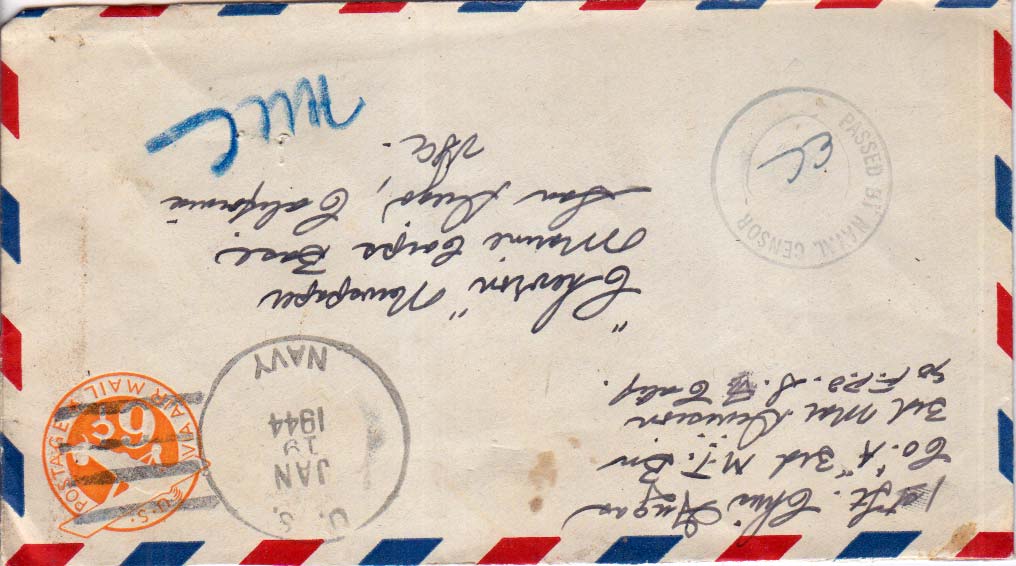 1st Lt. Chris Gugas
Co. "A" 3rd M.T. Bn
3rd Mar Division
c/o F.P.O. S.F. Calif.
U. S.
JAN
19
1944
NAVY
U.S. POSTAGE
VIA AIR MAIL
6¢
"Chevron" Newspaper
Marine Corps Base
San Diego, California
USA.
PASSED BY NAVAL CENSOR
EC